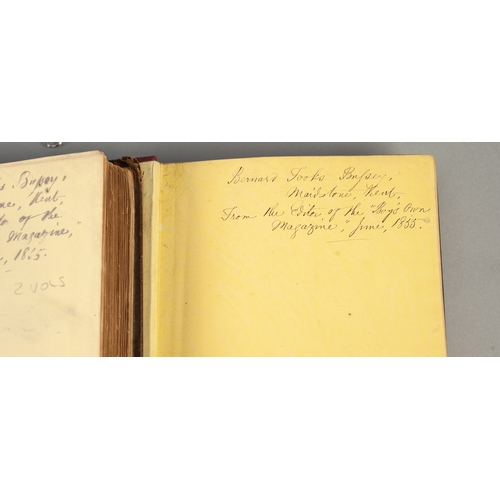 s Bussey,
ne, Kent,
or of the
Magazine,"
, 1855.
2 VOLS
Bernard Tooks Bussey,
Maidstone, Kent,
From the Editor of the "Boy's Own
Magazine," June, 1855.